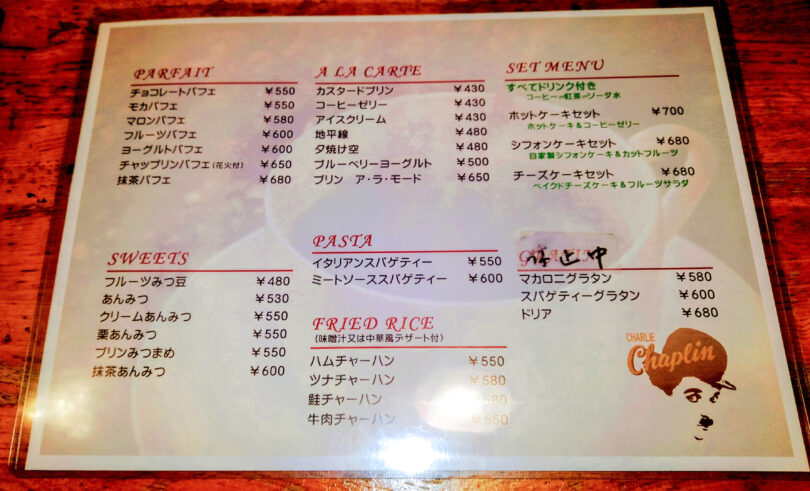 PARFAIT
チョコレートパフェ ¥550
モカパフェ ¥550
マロンパフェ ¥580
フルーツパフェ ¥600
ヨーグルトパフェ ¥600
チャップリンパフェ(花火付) ¥650
抹茶パフェ ¥680
A LA CARTE
カスタードプリン ¥430
コーヒーゼリー ¥430
アイスクリーム ¥430
地平線 ¥480
夕焼け空 ¥480
ブルーベリーヨーグルト ¥500
プリン ア・ラ・モード ¥650
SET MENU
すべてドリンク付き
コーヒーor紅茶orソーダ水
ホットケーキセット ¥700
ホットケーキ&コーヒーゼリー
シフォンケーキセット ¥680
自家製シフォンケーキ&カットフルーツ
チーズケーキセット ¥680
ベイクドチーズケーキ&フルーツサラダ
SWEETS
フルーツみつ豆 ¥480
あんみつ ¥530
クリームあんみつ ¥550
栗あんみつ ¥550
プリンみつまめ ¥550
抹茶あんみつ ¥600
PASTA
イタリアンスパゲティー ¥550
ミートソーススパゲティー ¥600
FRIED RICE
(味噌汁又は中華風デザート付)
ハムチャーハン ¥550
ツナチャーハン ¥580
鮭チャーハン ¥580
牛肉チャーハン ¥650
停止中
マカロニグラタン ¥580
スパゲティーグラタン ¥600
ドリア ¥680
CHARLIE
Chaplin